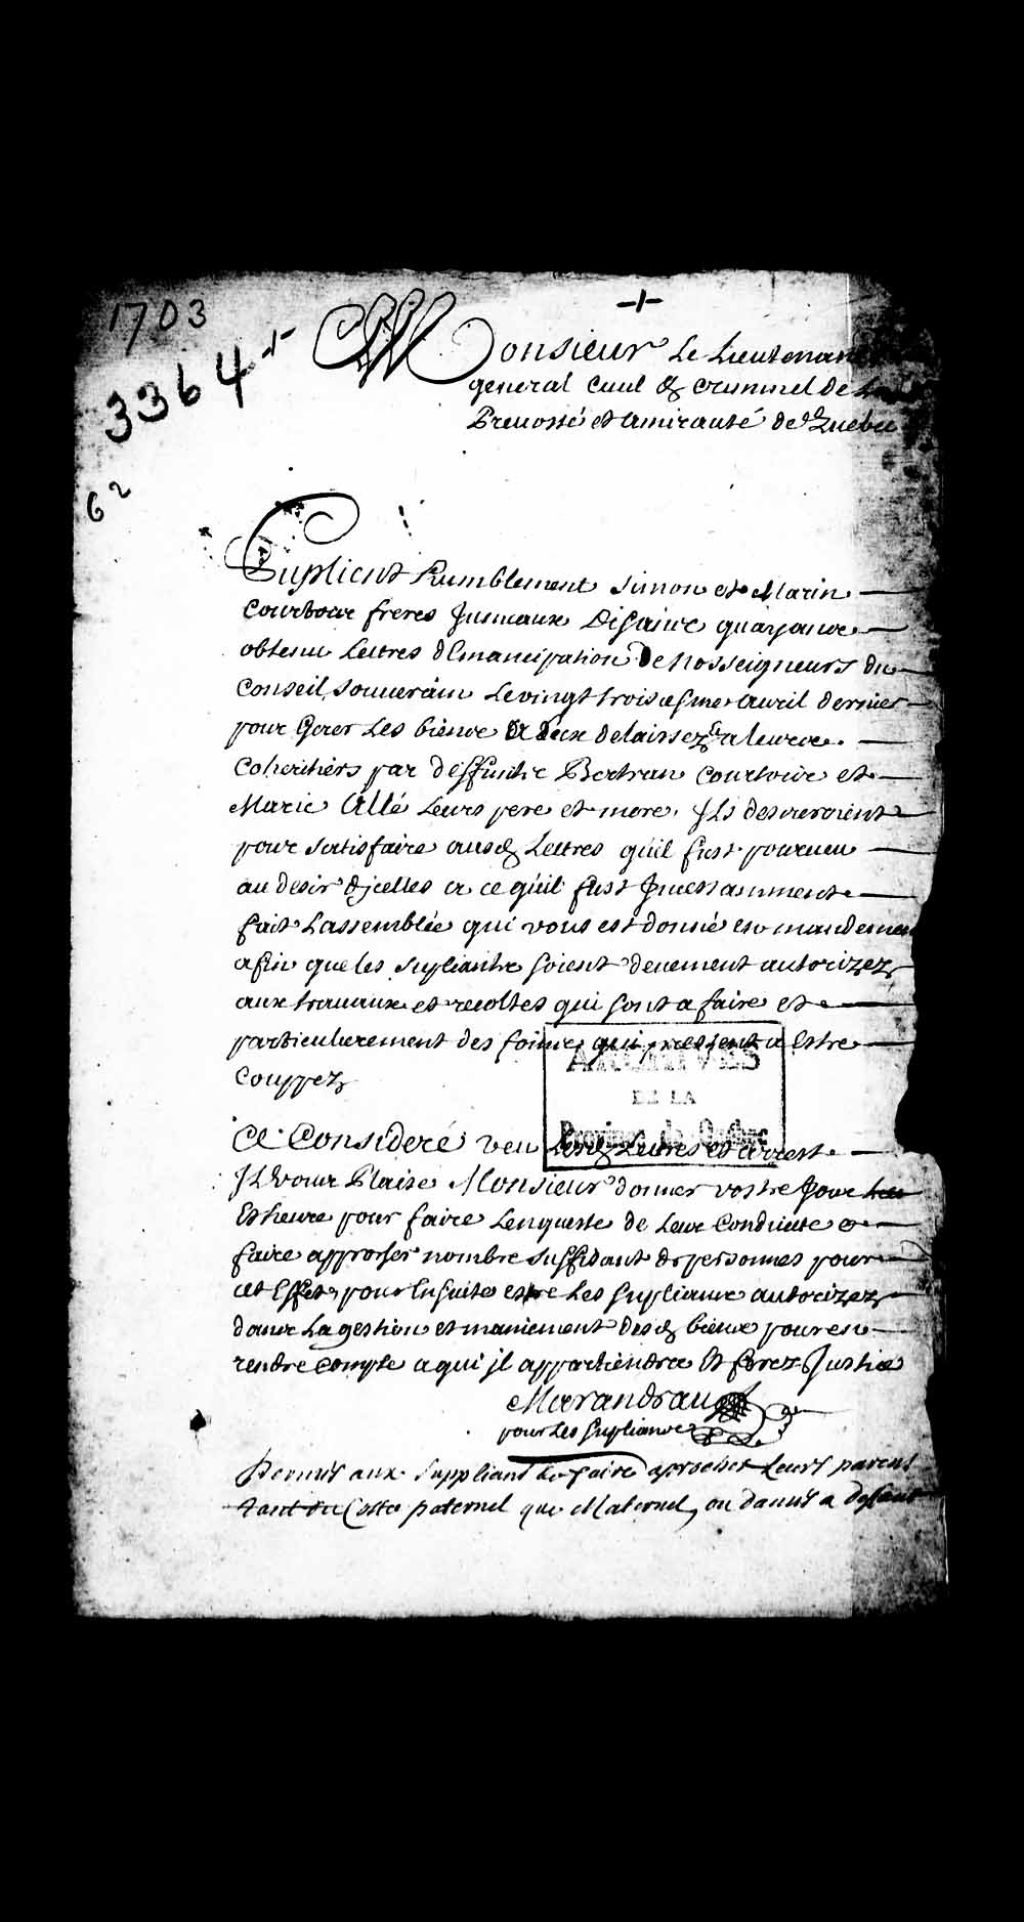 1703
3364
62
Monsieur Le Lieutenant
general Ciuil & Criminel de La
Preuosté et amirauté de Quebec
Suplient humblement Simon et Marin
Courtois freres Jumeaux Disaint quayant
obtenu Lettres dEmancipation De Nosseigneurs du
Conseil souuerain Le vingt troisiesme auril dernier
pour Gerer Les biens a Eux delaissez & a leurs
Coheritiers par deffuncts Bertran Courtois et
Marie Allé Leurs pere et mere, JLs desireroient
pour satisfaire ausd Lettres quil fust pourueu
au desir djcelles et ce quil fust Jncessamment
fait Lassemblée qui vous est donné en mandement
afin que les supliants soient deuement autorizez
aux trauaux et recoltes qui sont a faire et
particulierement des foins qui pressent a Estre
Couppez
ARCHIVES
DE LA
Province de Québec
Ce Consideré veu Lesd Lettres et arrest
JL vous Plaise Monsieur donner vostre Jour
Et heure pour faire Lenqueste de Leur Conduitte &
faire approcher nombre suffisant de personnes pour
cet Effet, pour Ensuite estre Les supliants autorizez
dans La gestion et maniement desd biens pour en
rendre compte a qui jl appartiendra Et ferez Justice
Marandeau
pour Les supliants
Permis aux Suppliant de faire aprocher Leurs parens
tant du Costé paternel que Maternel, ou damis a defaut